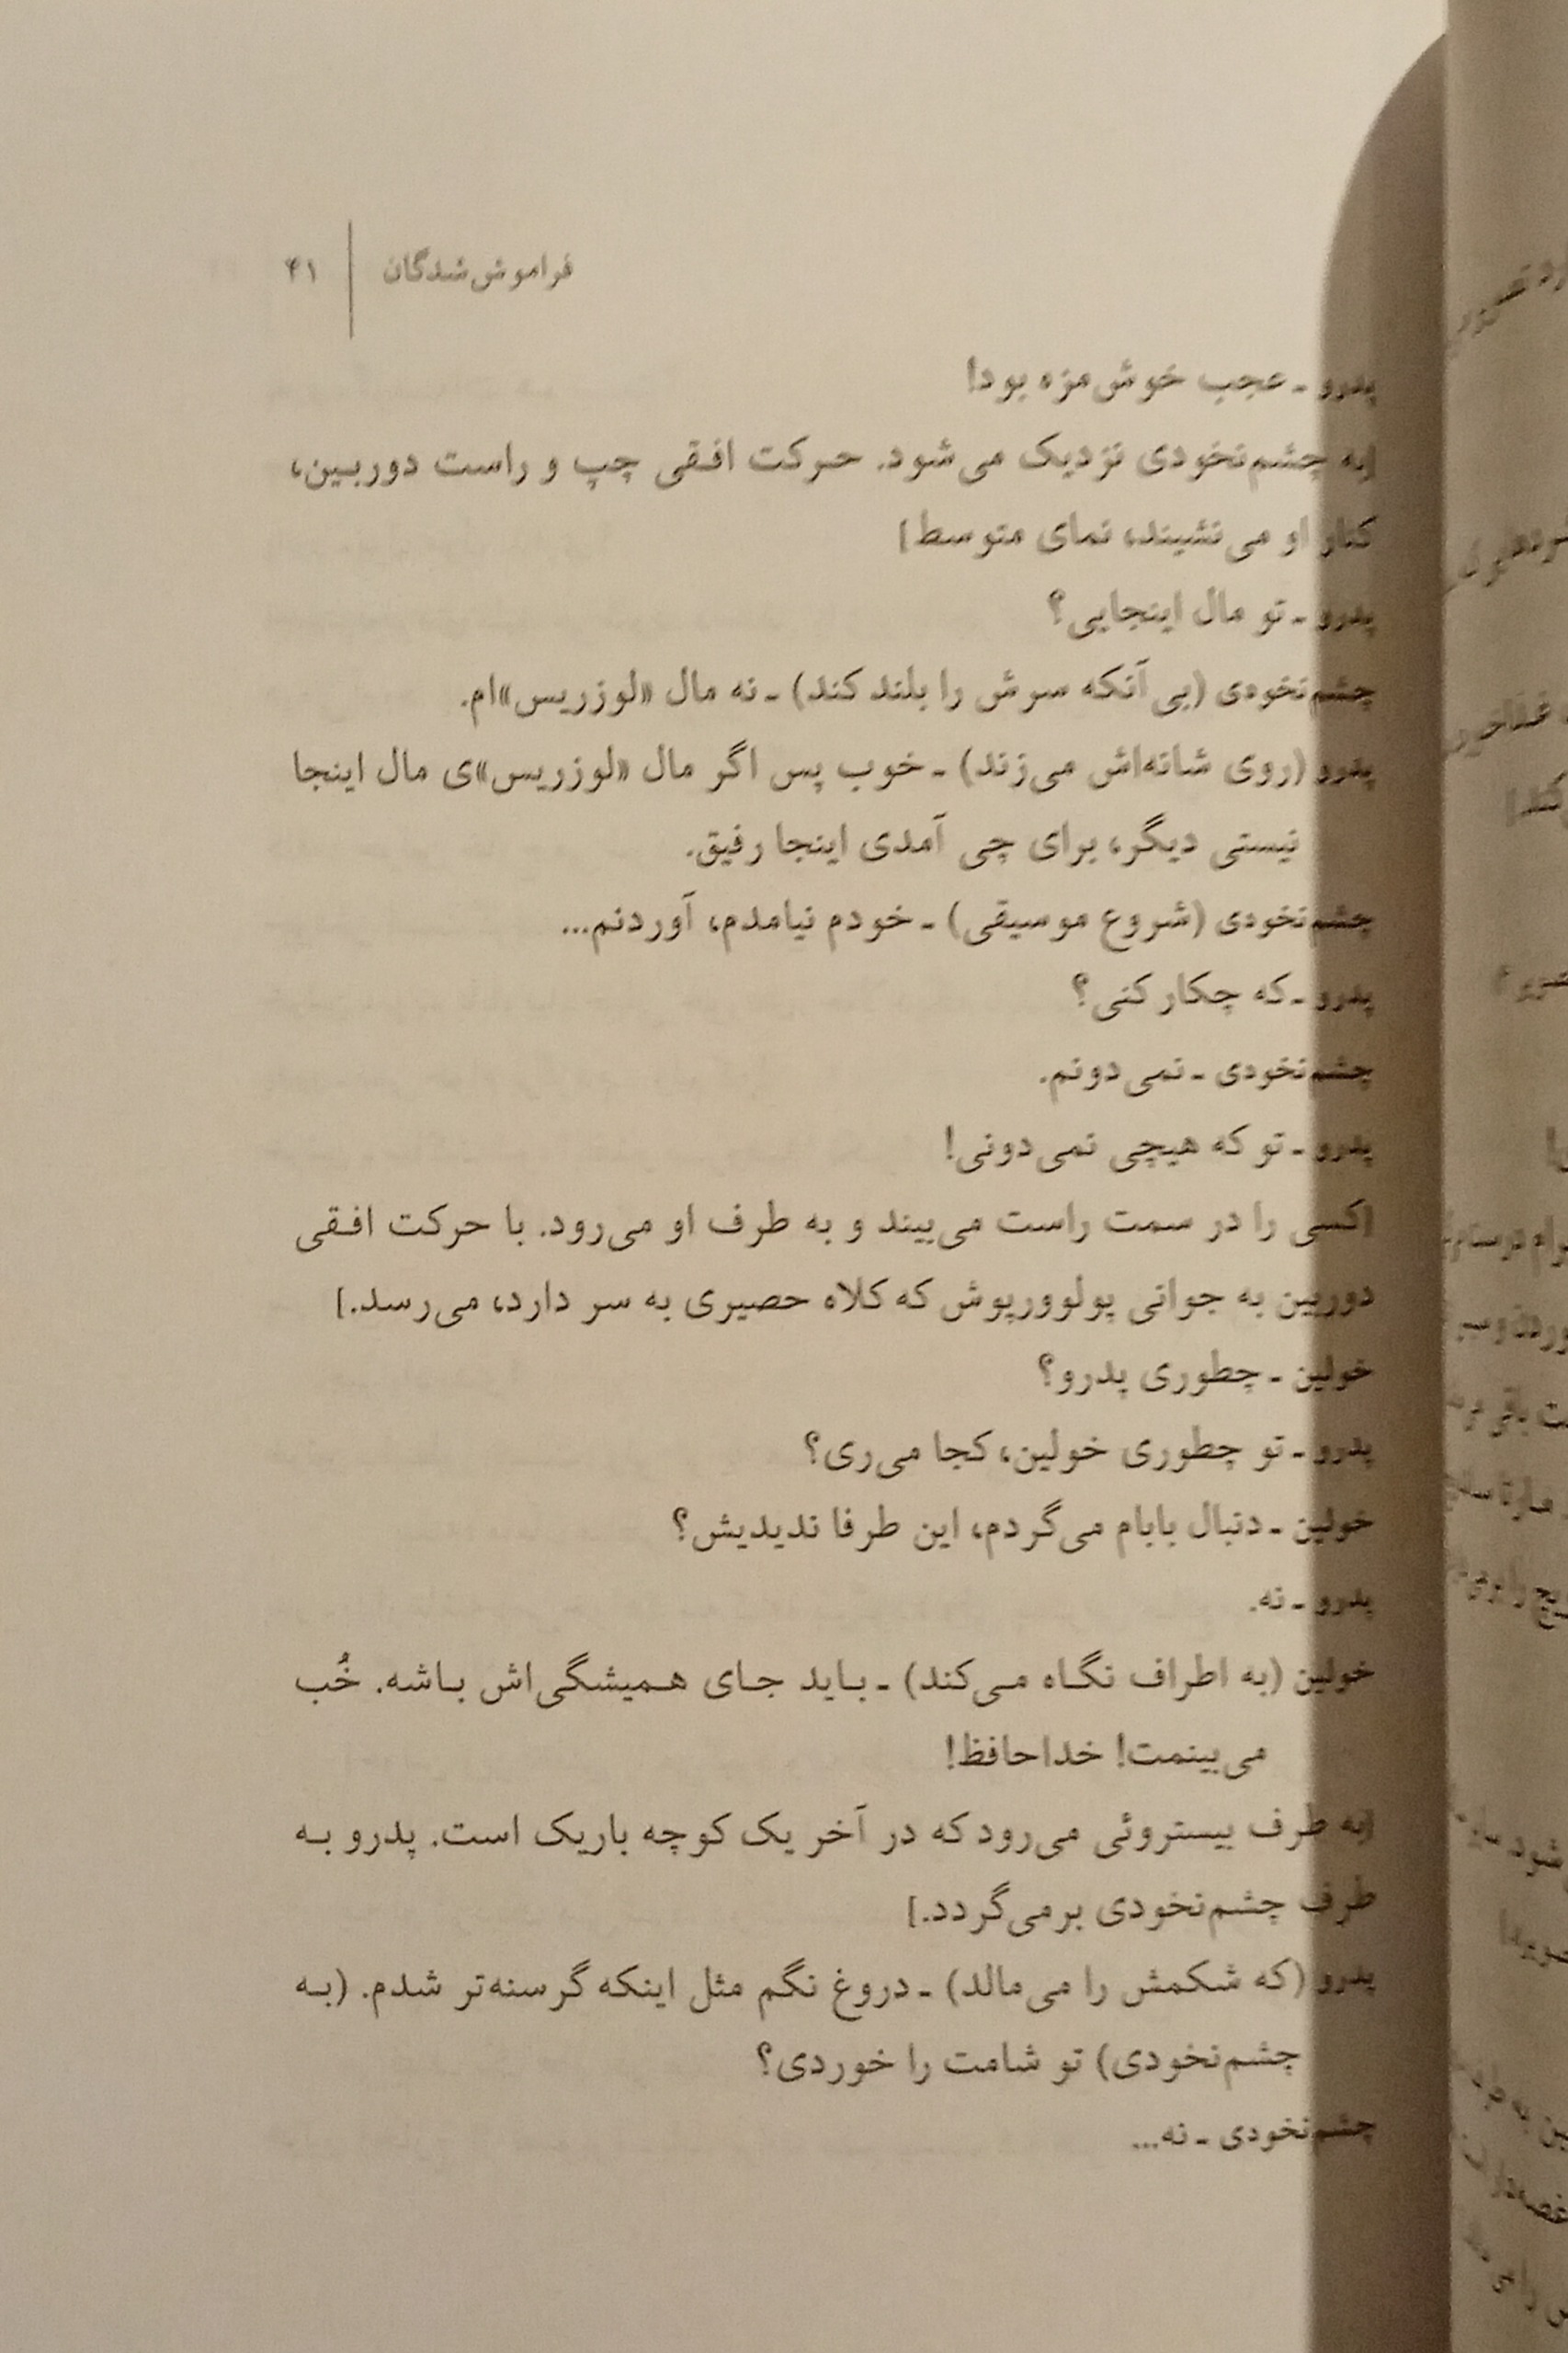 فراموش‌شدگان | ۴۱
پدرو ـ عجب خوش‌مزه بود!
[به چشم‌نخودی نزدیک می‌شود. حرکت افقی چپ و راست دوربین،
کنار او می‌نشیند، نمای متوسط]
پدرو ـ تو مال اینجایی؟
چشم‌نخودی (بی‌آنکه سرش را بلند کند) ـ نه مال «لوزریس»ام.
پدرو (روی شانه‌اش می‌زند) ـ خوب پس اگر مال «لوزریس»ی مال اینجا
نیستی دیگر، برای چی آمدی اینجا رفیق.
چشم‌نخودی (شروع موسیقی) ـ خودم نیامدم، آوردنم...
پدرو ـ که چکار کنی؟
چشم‌نخودی ـ نمی‌دونم.
پدرو ـ تو که هیچی نمی‌دونی!
[کسی را در سمت راست می‌بیند و به طرف او می‌رود. با حرکت افقی
دوربین به جوانی پولوورپوش که کلاه حصیری به سر دارد، می‌رسد.]
خولین ـ چطوری پدرو؟
پدرو ـ تو چطوری خولین، کجا می‌ری؟
خولین ـ دنبال بابام می‌گردم، این طرفا ندیدیش؟
پدرو ـ نه.
خولین (به اطراف نگاه می‌کند) ـ باید جای همیشگی‌اش باشه. خُب
می‌بینمت! خداحافظ!
[به طرف بیستروئی می‌رود که در آخر یک کوچه باریک است. پدرو به
طرف چشم‌نخودی برمی‌گردد.]
پدرو (که شکمش را می‌مالد) ـ دروغ نگم مثل اینکه گرسنه‌تر شدم. (به
چشم‌نخودی) تو شامت را خوردی؟
چشم‌نخودی ـ نه...